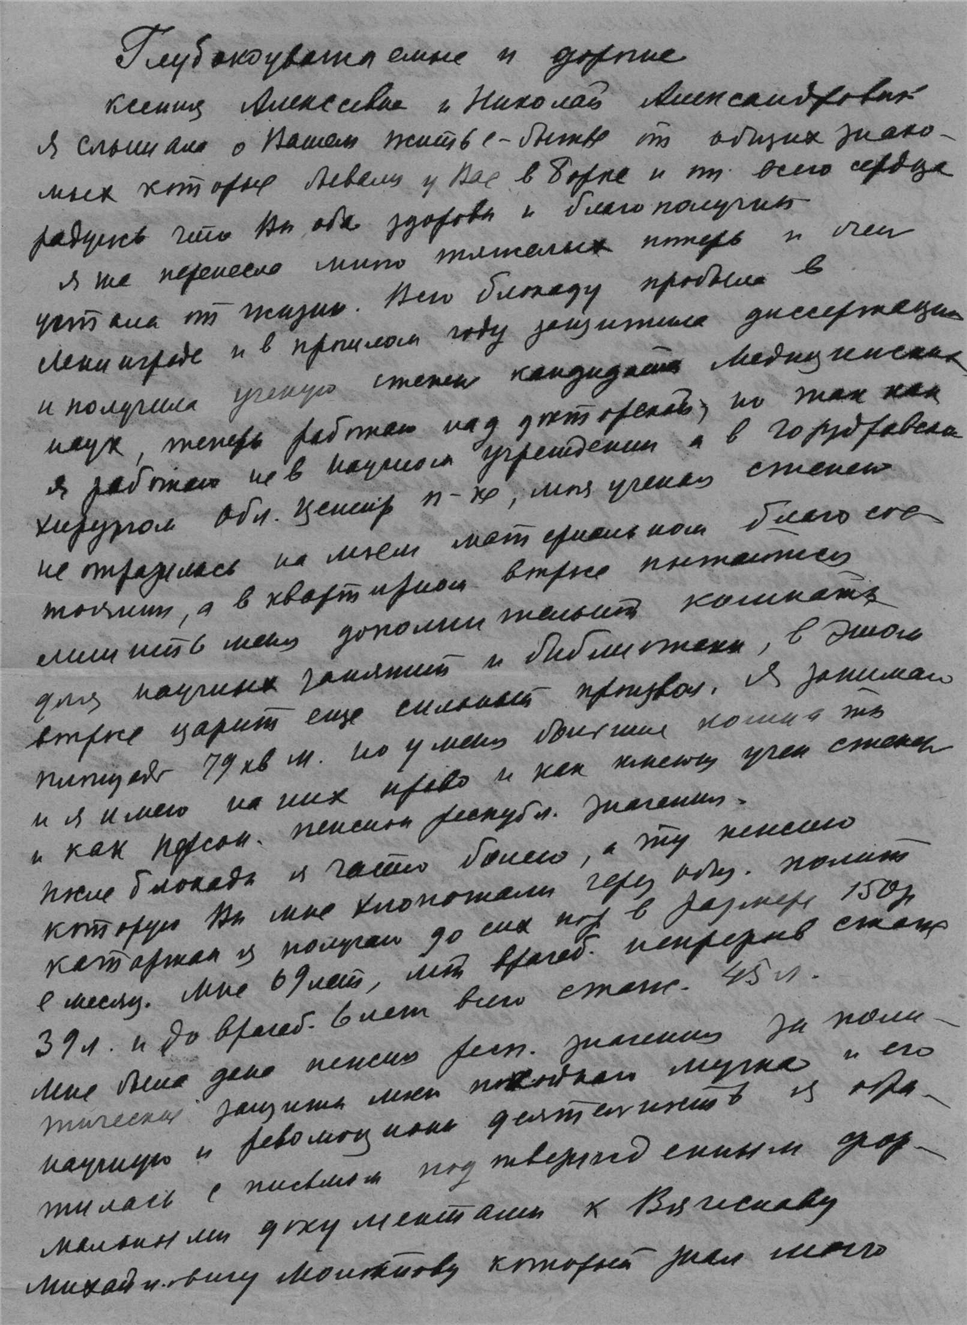 Глубокоуважаемые и дорогие
Ксения Алексеевна и Николай Александрович
Я слышала о Вашем житье-бытье от общих знако-
мых которые бывали у Вас в Борке и от всего сердца
радуюсь что Вы оба здоровы и благополучны
Я же перенесла много тяжелых потерь и очень
устала от жизни. Всю блокаду пробыла в
Ленинграде и в прошлом году защитила диссертацию
и получила ученую степень кандидата медицинских
наук, теперь работаю над докторской, но так как
я работаю не в научном учреждении а в Горздравском
хирургом Обл. Центр п-ке, моя ученая степень
не отразилась на моем материальном благосос-
тоянии, а в квартирном вопросе пытаются
лишить меня дополнительной комнаты
для научных занятий и библиотеки, в этом
вопросе царит еще сильный произвол. Я занимаю
площадь 79 кв м. но у меня большие комнаты
и я имею на них право и как имеющ учен степень
и как персон. пенсион республ. значения.
После блокады я часто болею, а ту пенсию
которую Вы мне хлопотали через общ. полит
каторжан я получаю до сих пор в размере 150 р
в месяц. Мне 69 лет, мой врачеб. непрерыв стаж
39 л. и до врачеб. 6 лет всего стаж. 45 л.
Мне была дана пенсия респ. значения за поли-
тическия защиты моего покойного мужа и его
научную и революционн деятельность я обра-
тилась с письмом подтвержденным фор-
мальными документами к Вячеславу
Михайловичу Молотову который знал моего